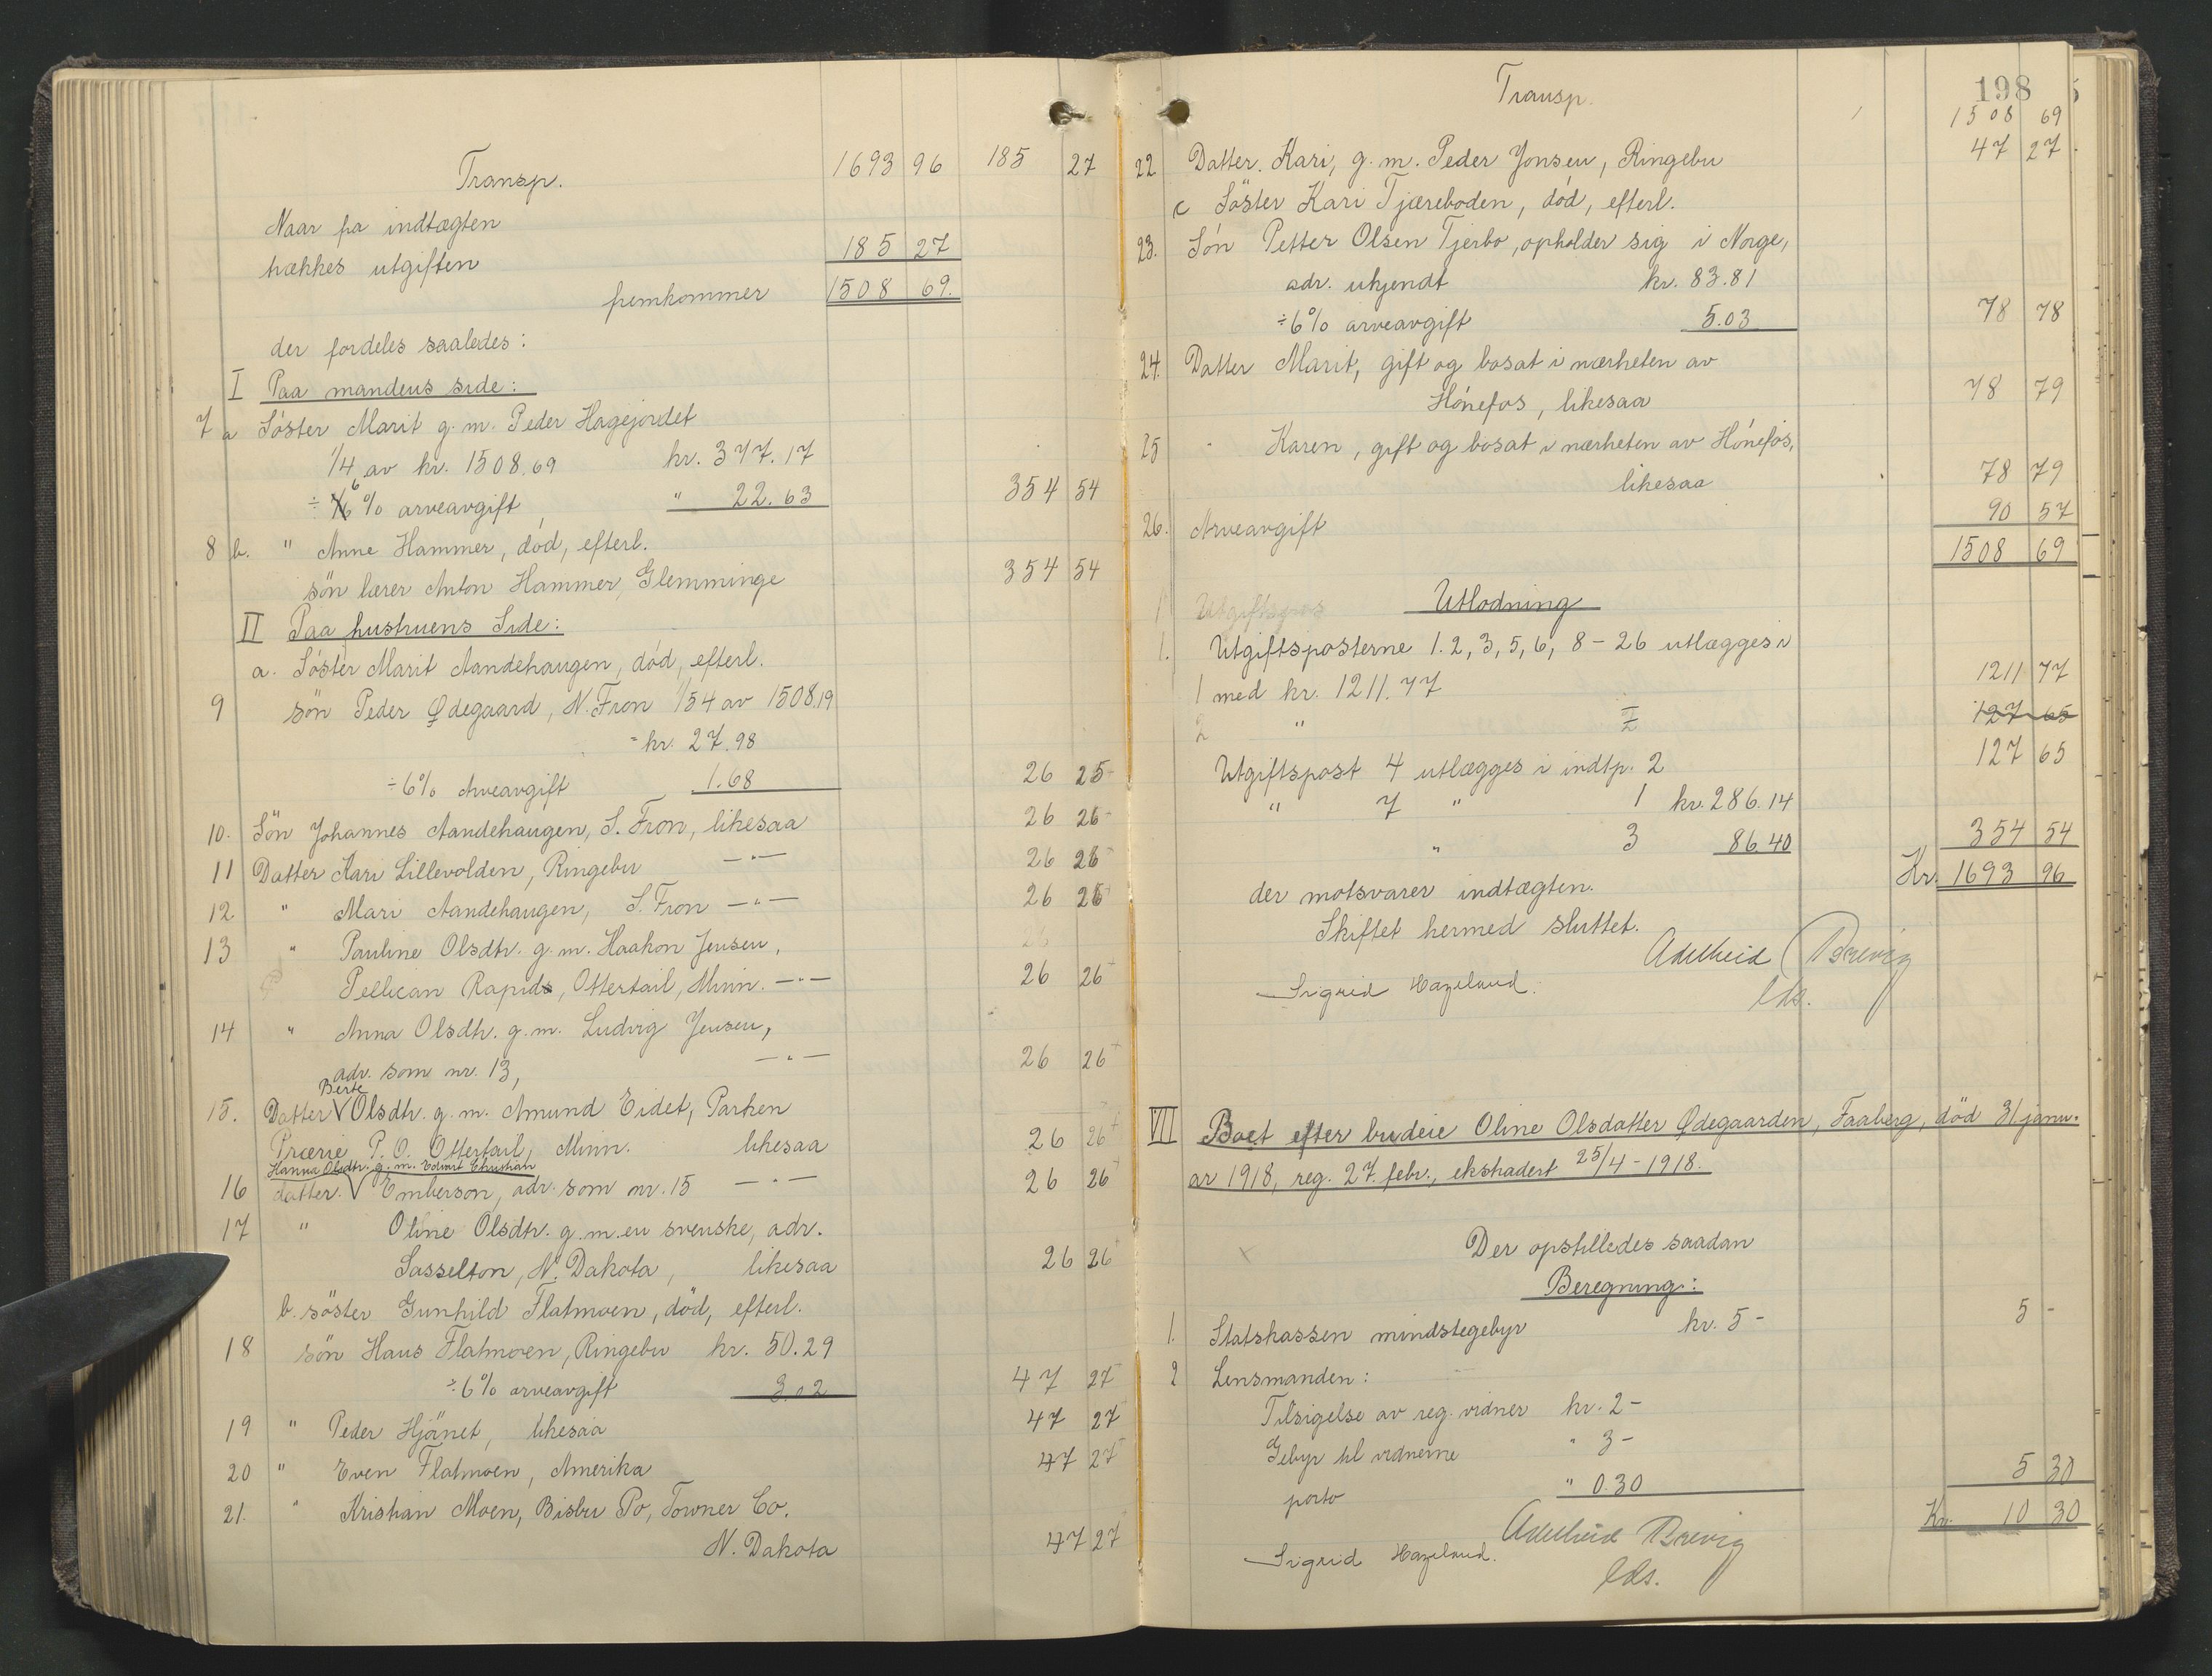 Transp. 1693 96 185 27
Naar fra indtægten
trækkes utgiften 185 27
fremkommer 1508 69.
der fordeles saaledes:
I Paa mandens side:
7 a Söster Marit g.m. Peder Hagejordet
1/4 av kr. 1508.69 kr. 377.17
÷ 6 % arveavgift " 22.63 354 54
8 b. " Anne Hammer, död, efterl.
sön lærer Anton Hammer, Glemminge 354 54
II Paa hustruens Side:
a. Söster Marit Aandehaugen, död, efterl.
9 sön Peder Ødegaard, N. Fron 1/54 av 1508.19
= kr. 27.98
÷ 6% Arveavgift 1.68 26 25
10. Sön Johannes Aandehaugen, S. Fron, likesaa 26 26
11 Datter Kari Lillevolden, Ringebu —"— 26 26
12 " Mari Aandehaugen, S. Fron —"— 26 26
13 " Pauline Olsdtr. g.m. Haakon Jensen,
Pellican Rapids, Ottertail, Minn. —"— 26 26
14 " Anna Olsdtr. g.m. Ludvig Jensen,
adr. som nr. 13, —"— 26 26
Berte
15. Datter V Olsdtr. g.m. Amund Eidet, Parken
Prærie P.O. Ottertail, Minn. likesaa 26 26
Hanna Olsdtr. g.m. Edvart Christian
16 datter. V Emberson, adr. som nr. 15 —"— 26 26
17 " Oline Olsdtr. g.m. en svenske, adr.
Sasselton, N. Dakota, likesaa 26 26
b. söster Gunhild Flatmoen, död, efterl.
18 sön Hans Flatmoen, Ringebu kr. 50.29
÷ 6% arveavgift 3.02 47 27
19 " Peder Hjänet, likesaa 47 27
20 " Even Flatmoen, Amerika 47 27
21. " Kristian Moen, Bisbu Po, Towner Co.
N. Dakota 47 27
198
Transp. 1508 69
22 Datter Kari, g.m. Peder Jonsen, Ringebu 47 27
c Söster Kari Tjæreboden, död, efterl.
23. Sön Petter Olsen Tjerbo, opholder sig i Norge,
adr. ukjendt kr. 83.81
÷ 6% arveavgift 5.03 78 78
24. Datter Marit, gift og bosat i nærheten av
Hönefos, likesaa 78 79
25 " Karen, gift og bosat i nærheten av Hönefos,
likesaa 78 79
26. Arveavgift 90 57
1508 69
1 Utgiftspos Utlodning
1. Utgiftsposterne 1. 2, 3, 5, 6, 8 - 26 utlægges i
1 med kr. 1211.77 1211 77
2 " 2 127 65
Utgiftspost 4 utlægges i indtp. 2 127 65
" 7 " 1 kr. 286.14
" 3 86.40 354 54
der motsvarer indtægten. Kr. 1693 96
Skiftet hermed sluttet.
Adelheid Brevig
Sigrid Hazeland. cds.
VII Boet efter budeie Oline Olsdatter Ødegaarden, Faaberg, död 31. janu-
ar 1918, reg. 27. febr., ekstradert 25/4 - 1918.
Der opstilledes saadan
Beregning:
1. Statskassen mindstegebyr kr. 5 - 5 -
2 Lensmanden:
Tilsigelse av reg. vidner kr. 2 -
Gebyr til vidnerne " 3 -
porto " 0.30 5 30
Kr. 10 30
Adelheid Brevig
Sigrid Hazeland. cds.